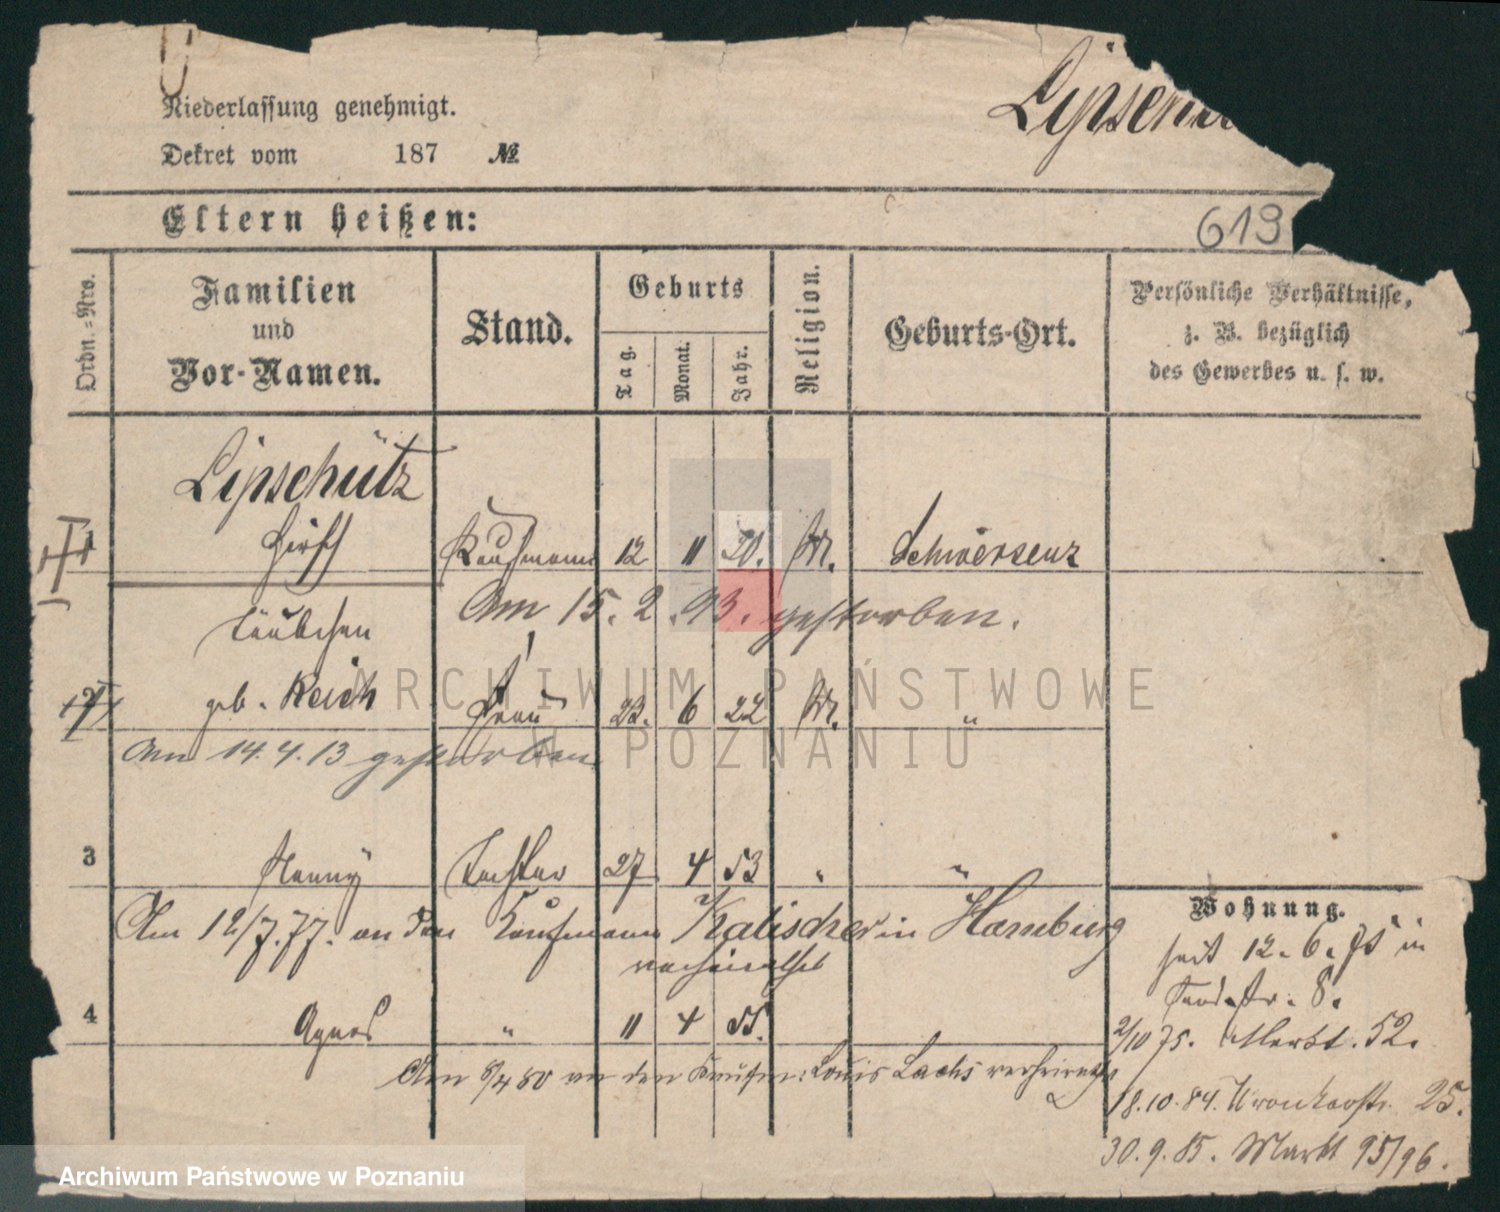 Niederlassung genehmigt.
Dekret vom 187 №
Eltern heißen:
619
Ordn.=Nro.
Familien
und
Vor-Namen.
Stand.
Geburts
Tag.
Monat.
Jahr.
Religion.
Geburts-Ort.
Persönliche Verhältnisse,
z. B. bezüglich
des Gewerbes u. s. w.
Lipschütz
1 Hirsch Kaufmann 12 11 20. M. Schwersenz
Am 15. 2. 93. gestorben.
Täubchen
2 geb. Reich Frau 23. 6 22 M. "
Am 14. 4. 13 gestorben
3 Nanny Tochter 27 4 53 " "
Am 12/7. 77. an den Kaufmann Kalischer in Hamburg
verheirathet
4 Agnes " 11 4 55.
Am 5/4 80 an den Kaufm: Louis Lachs verheirathet
Wohnung.
seit 12. 6. 75 in
8.
2/10 75. Markt. 52.
18.10.84. Wronkerstr. 25.
30.9.85. Markt 95/96.
ARCHIWUM PAŃSTWOWE
W POZNANIU
Archiwum Państwowe w Poznaniu